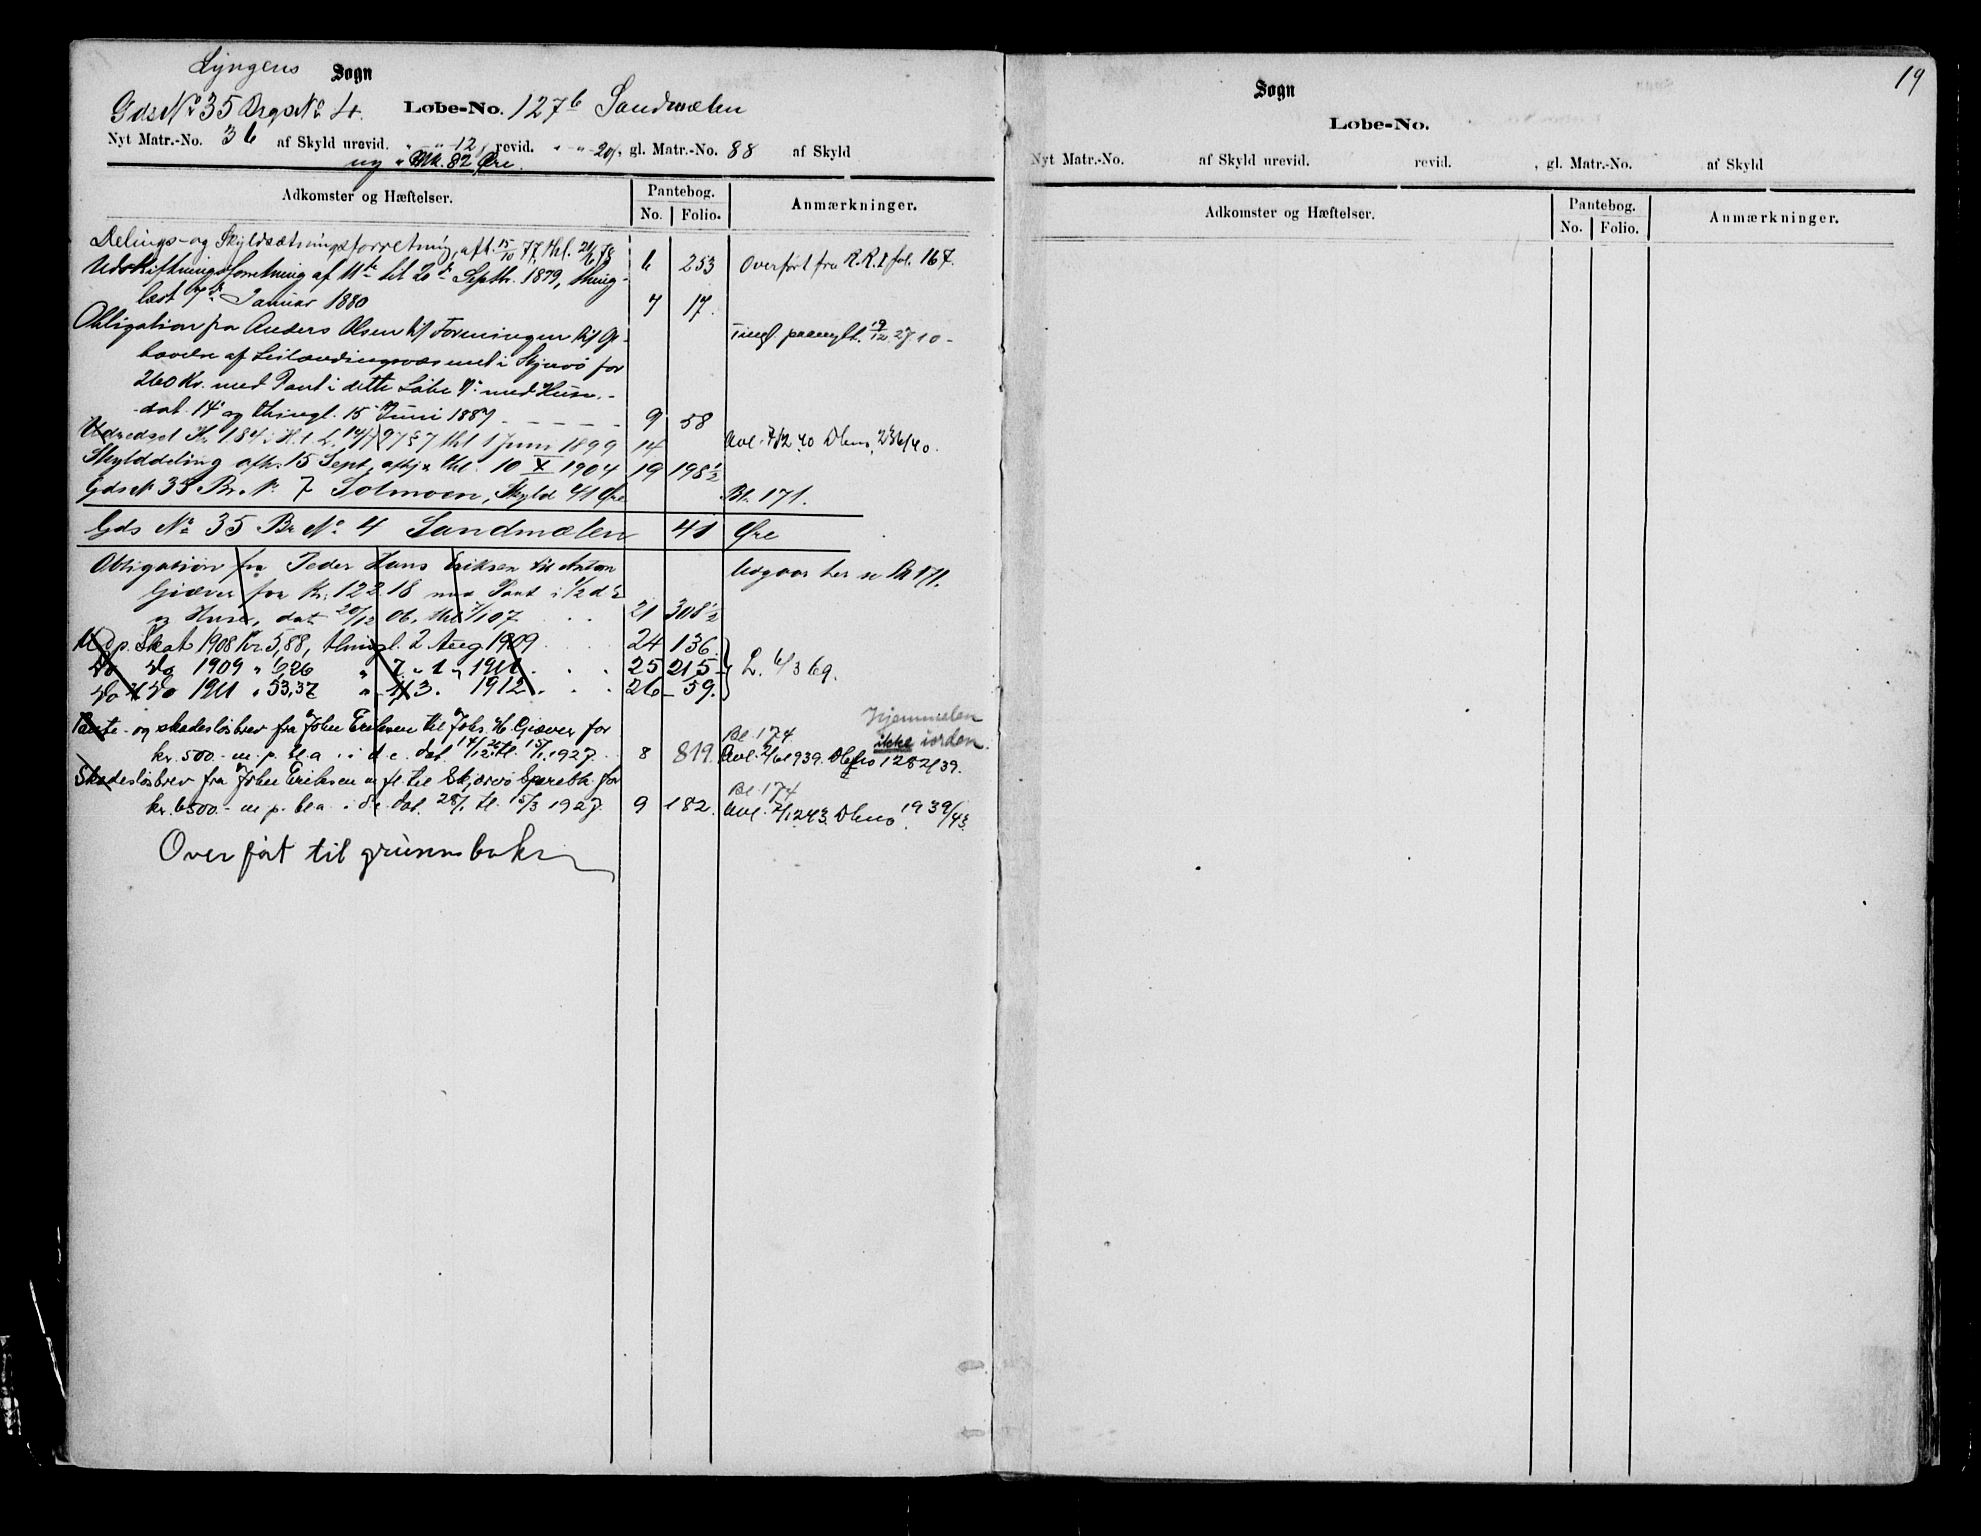 Lyngens Sogn
Gds No 35 Brgs No 4. Løbe-No. 127b Sandmælen
Nyt Matr.-No. 36 af Skyld urevid. " - " - 12 revid. " - " - 20, gl. Matr.-No. 88 af Skyld
ny " Mk. 82 Øre.
Adkomster og Hæftelser. Pantebog. Anmærkninger.
No. Folio.
Delings- og Skyldsætningsforretning, afh. 15/10 77, thl. 78 6 253 Overført fra R.R.I fol. 167.
Udskiftningsforretning af 11te til 20de Septbr. 1879, thing-
læst 7de Januar 1880 7 17.
Obligation fra Anders Olsen til Foreningen til Op- Tingl paanytt. 19/12 27 10 -
hævelse af Leilændingsvæsenet i Skjervø for
260 Kr. med Pant i dette Løbe No med Huse. -
dat. 14 og thingl. 15 Juni 1887 - - - - - 9 58
Udredsel Kr 184 i H.t. L. 14/7 97 § 7 thl 1 Juni 1899 14 Avl. 7/2 40 Dbno 236/40.
Skylddeling afh. 15 Sept, thl. 10 X 1904 19 198½
Gds No 35 Br. No. 7 Solmoen, Skyld 41 Øre Bl. 171.
Gds No 35 Br No 4 Sandmælen 41 Øre
Obligation fra Peder Hans Eriksen til Anton Udgaar her se Bl 171.
Giæver for Kr. 122.18 med Pant i ½ d:e
og Huse, dat 20/12 06, thl 7/1 07 . . 21 308½
Ud p. Skat 1908 Kr. 5,88, thingl. 2 Aug 1909 24 136.
Do Do 1909 " 6,26 " 7. " 1 " 1911 . . . 25 215 - L. 6/3 69.
Do Do 1911 " 53,37 " 1/3. 1912. . . 26 - 59.
Pante- og skadesløsbrev fra John Eriksen til Johs. H. Giæver for Bl. 174 Hjemmelen
kr. 500.- m. p. bl. a. i d e. dat. 14/12 26 tl. 15/1 1927. 8 819. Avl. 2/6 1939. Dbno 1282/39. ikke iorden.
Skadesløsbrev fra John Eriksen m fl. til Skjervø Sparebk. for Bl. 174
kr. 6500.- m. p. bl a. i de. dat. 28/1 tl. 15/3 1927. 9 182. Avl. 2/12 43. Dbno 1939/43.
Overført til grunnboken
19
Sogn
Løbe-No.
Nyt Matr.-No. af Skyld urevid. revid. , gl. Matr.-No. af Skyld
Adkomster og Hæftelser. Pantebog. Anmærkninger.
No. Folio.